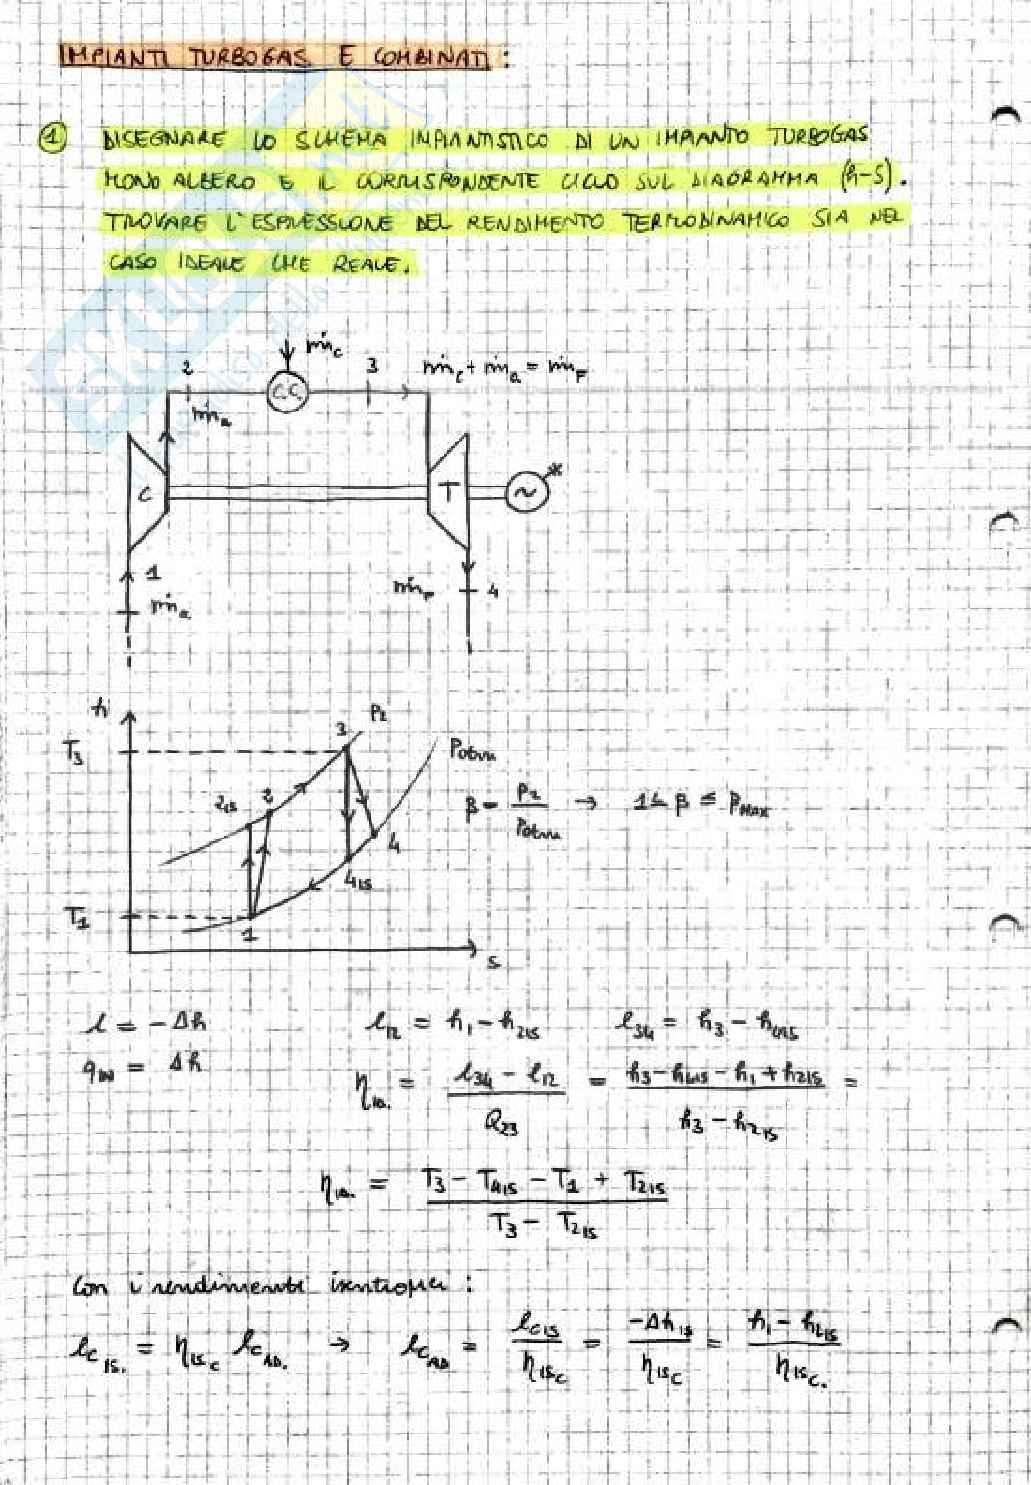 IMPIANTI TURBOGAS E COMBINATI:
1 DISEGNARE LO SCHEMA IMPIANTISTICO DI UN IMPIANTO TURBOGAS
MONO ALBERO E IL CORRISPONDENTE CICLO SUL DIAGRAMMA (h-s).
TROVARE L'ESPRESSIONE DEL RENDIMENTO TERMODINAMICO SIA NEL
CASO IDEALE CHE REALE.
ṁc
2 3 ṁc + ṁa = ṁF
C.C.
ṁa
C T ~ *
1 ṁF 4
ṁa
h P2
3
T3 Patm
2is 2 β = P2/Patm → 1 ≤ β ≤ βMAX
4
4is
T1
1
s
l = -Δh l12 = h1 - h2is l34 = h3 - h4is
qin = Δh
ηid. = (l34 - l12)/Q23 = (h3 - h4is - h1 + h2is)/(h3 - h2is) =
ηid. = (T3 - T4is - T1 + T2is)/(T3 - T2is)
Con i rendimenti isentropici:
lC is. = ηisC lC AD. → lC AD = lCis/ηisC = -Δhis/ηisC = (h1 - h2is)/ηisC.